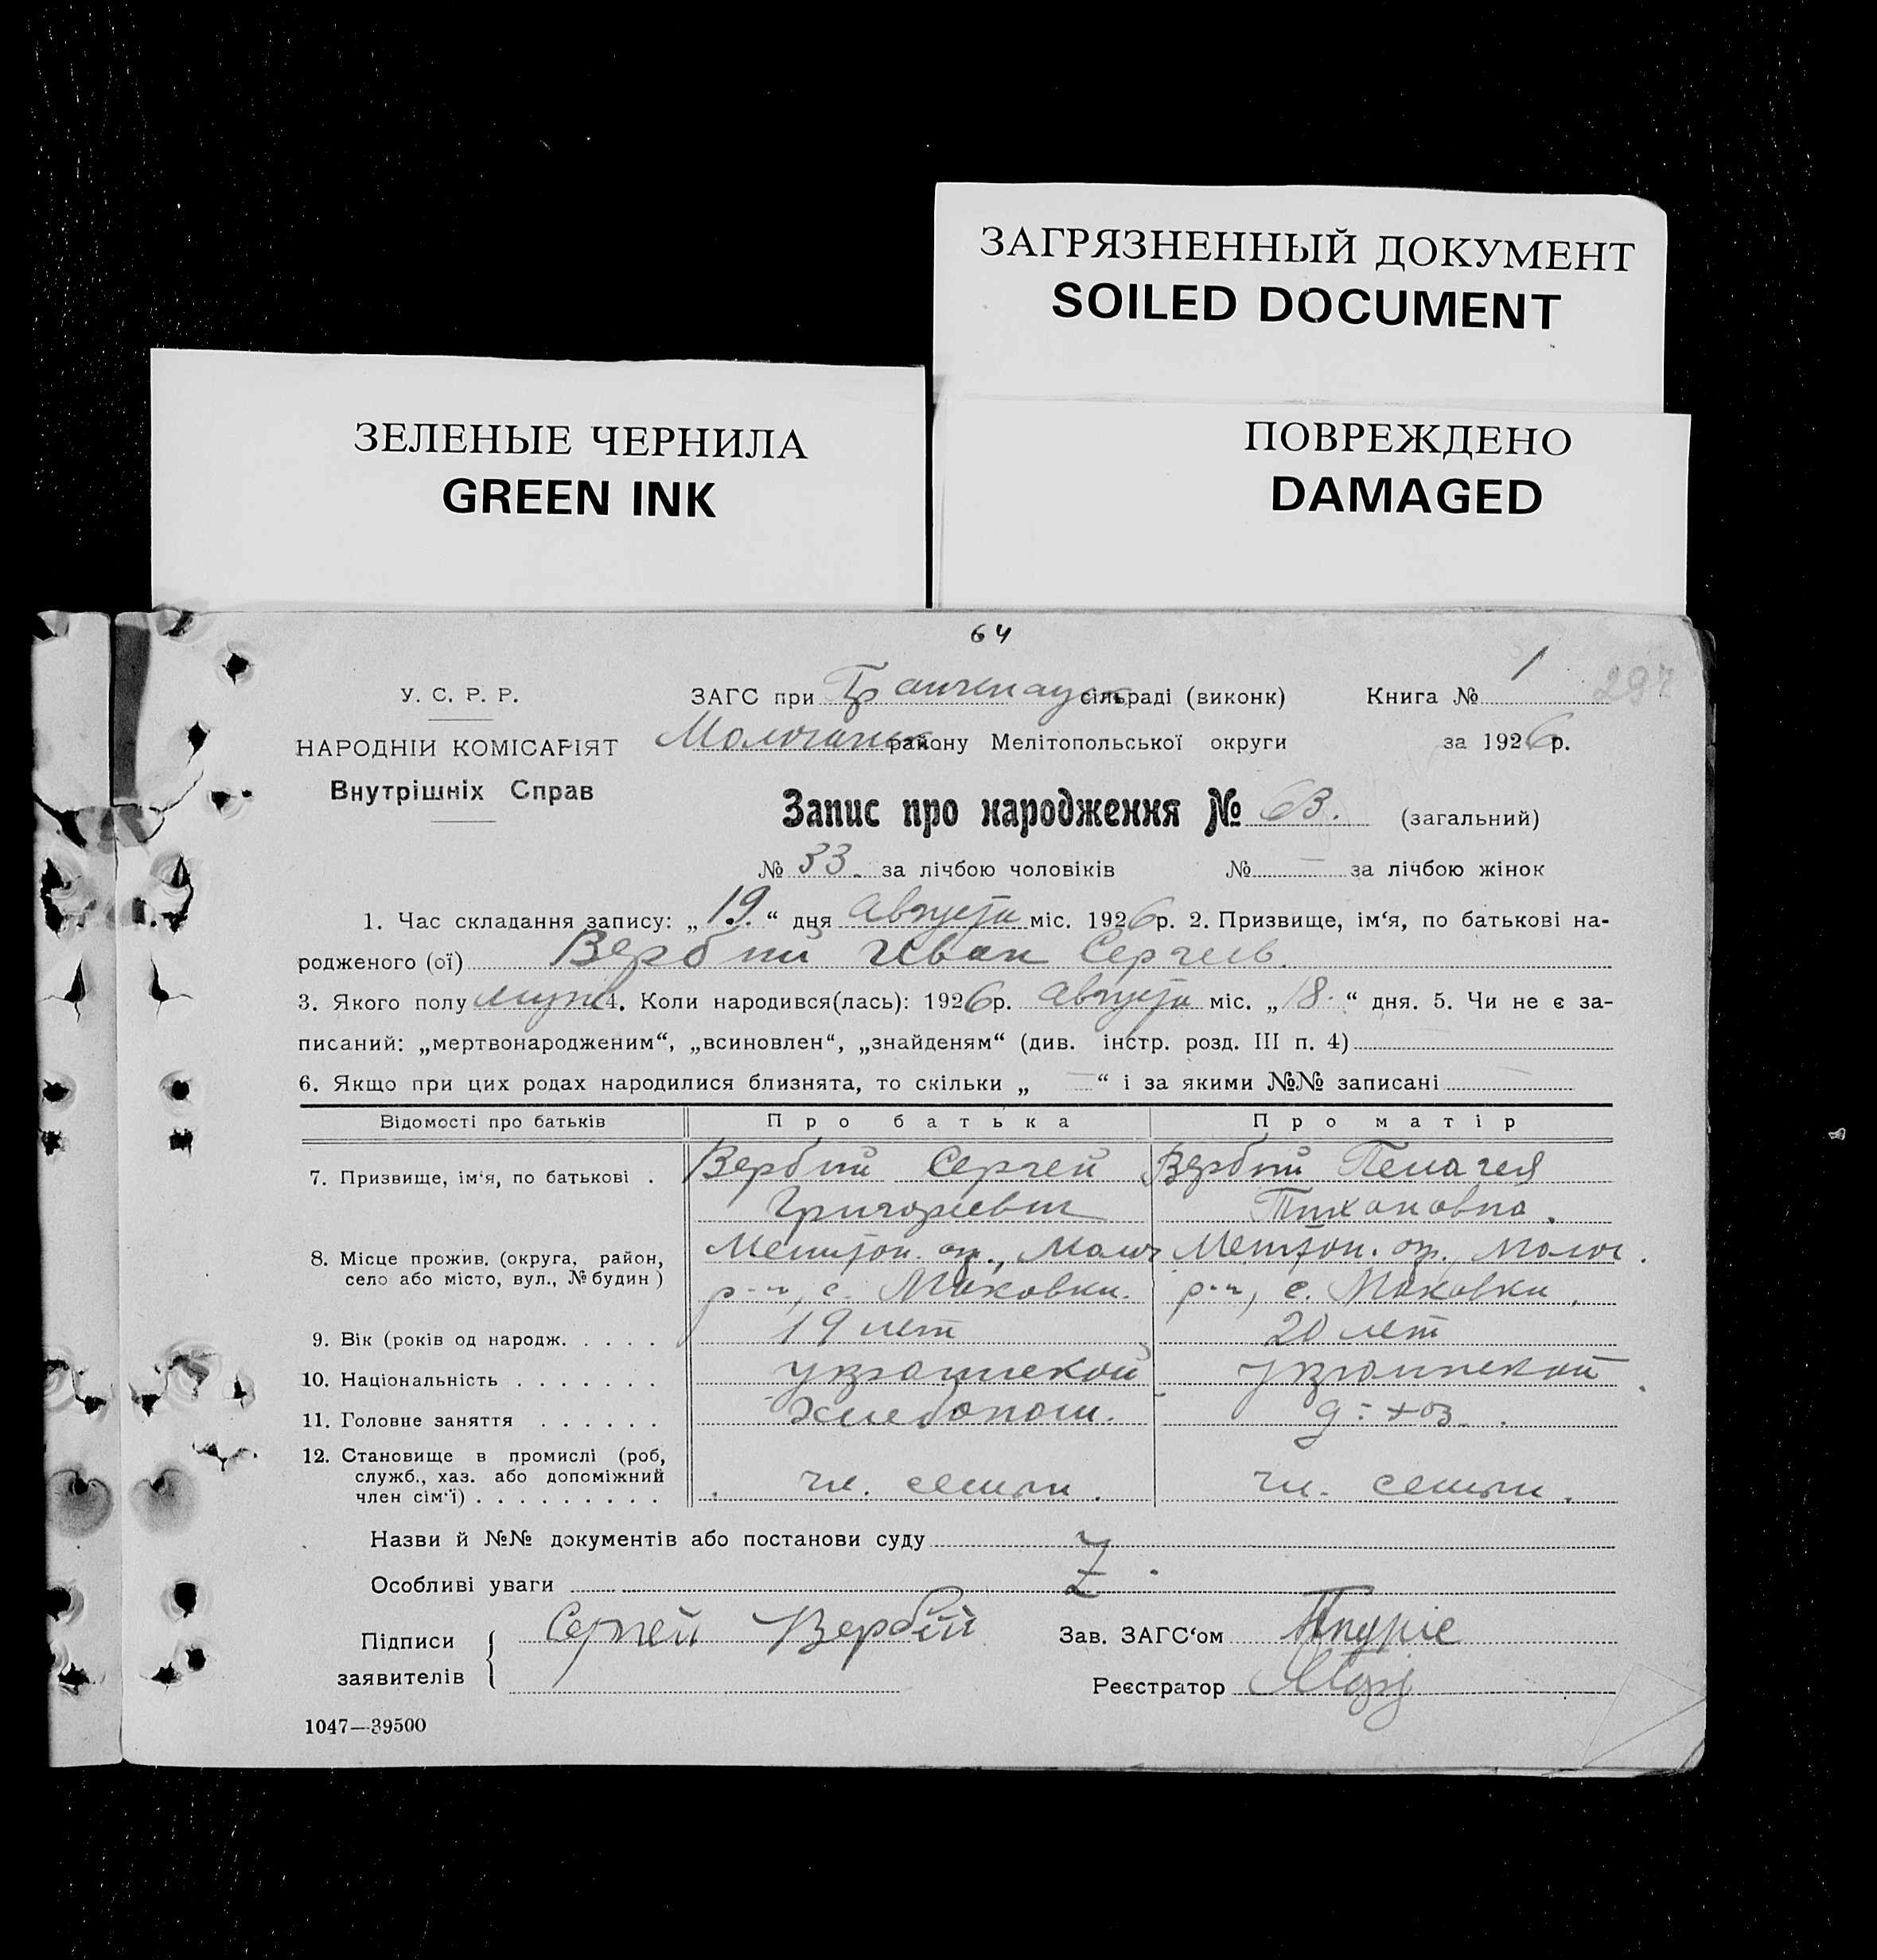 ЗАГРЯЗНЕННЫЙ ДОКУМЕНТ
SOILED DOCUMENT
ЗЕЛЕНЫЕ ЧЕРНИЛА
GREEN INK
ПОВРЕЖДЕНО
DAMAGED
64
У. С. Р. Р.
НАРОДНІЙ КОМІСАРІЯТ
Внутрішніх Справ
ЗАГС при сільраді (виконк) Книга № 1 297
Молочанск району Мелітопольської округи за 1926 р.
Запис про народження № 63. (загальний)
№ 33. за лічбою чоловіків № — за лічбою жінок
1. Час складання запису: „19.“ дня Августа міс. 1926 р. 2. Призвище, ім‘я, по батькові на-
родженого (ої) Вербий Иван Сергеев.
3. Якого полу муж 4. Коли народився(лась): 1926 р. Августа міс. „18.“ дня. 5. Чи не є за-
писаний: „мертвонародженим“, „всиновлен“, „знайденям“ (див. інстр. розд. III п. 4) —
6. Якщо при цих родах народилися близнята, то скільки „ — “ і за якими №№ записані —
Відомості про батьків Про батька Про матір
7. Призвище, ім‘я, по батькові . Вербий Сергей Вербий Пелагея
Григориевич Тихановна.
8. Місце прожив. (округа, район, село або місто, вул., № будин) Мелитоп. ок., Молоч Мелитоп. ок., Молоч.
р-н, с. Маковки. р-н, с. Маковки.
9. Вік (років од народж. . . . . 19 лет 20 лет
10. Національність . . . . . . . украинской украинской
11. Головне заняття . . . . . . Хлебопаш. д-хоз.
12. Становище в промислі (роб,
служб., хаз. або допоміжний
член сім‘ї) . . . . . . . . . чл. семьи. чл. семьи.
Назви й №№ документів або постанови суду
Особливі уваги Z
Підписи заявителів { Сергей Вербій Зав. ЗАГС‘ом
Реєстратор
1047—39500